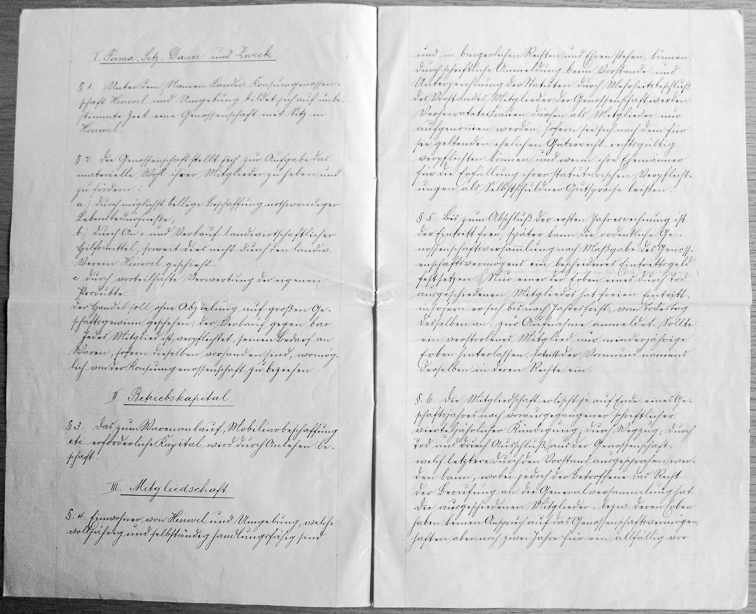 I. Firma, Sitz, Dauer und Zweck
§ 1. Unter dem Namen Landw. Konsumgenossen-
schaft Hinwil und Umgebung bildet sich auf unbe-
stimmte Zeit eine Genossenschaft mit Sitz in
Hinwil.
§ 2. Die Genossenschaft stellt sich zur Aufgabe das
materielle Wohl ihrer Mitglieder zu heben und
zu fördern:
a.) durch möglichst billige Beschaffung notwendiger
Lebensbedürfnisse,
b.) durch An- und Verkauf landwirtschaftlicher
Hilfsmittel, soweit dies nicht durch den landw.
Verein Hinwil geschieht
c. durch vorteilhafte Verwertung der eigenen
Produkte.
Der Handel soll ohne Abzielung auf großen Ge-
schäftsgewinn geschehen, der Verkauf gegen bar.
Jedes Mitglied ist verpflichtet, seinen Bedarf an
Waren, sofern dieselben vorhanden sind, womög-
lich von der Konsumgenossenschaft zu beziehen
II Betriebskapital
§ 3. Das zum Warenankauf, Mobiliarbeschaffung
etc. erforderliche Kapital wird durch Anleihen be-
schafft.
III. Mitgliedschaft
§ 4. Einwohner von Hinwil und Umgebung, welche
volljährig und selbständig handlungsfähig sind
und in bürgerlichen Rechten und Ehren stehen, können
durch schriftliche Anmeldung beim Vorstande und
Unterzeichnung der Statuten durch Mehrheitsbeschluß
des Vorstandes Mitglieder der Genossenschaft werden
Verheiratete Frauen dürfen als Mitglieder nur
aufgenommen werden, sofern sie sich nach dem für
sie geltenden ehelichen Güterrecht rechtsgültig
verpflichten können und wenn ihre Ehemänner
für die Erfüllung ihrer statutarischen Verpflicht-
ungen als Selbstschuldner Gutsprache leisten.
§ 5. Bis zum Abschluß der ersten Jahresrechnung ist
der Eintritt frei, später kann die ordentliche Ge-
nossenschaftsversammlung nach Maßgabe des Genoss-
enschaftsvermögens ein bescheidenes Eintrittsgeld
festsetzen. Nur einer der Erben eines durch Tod
ausgeschiedenen Mitgliedes hat freien Eintritt,
insofern er sich bis nach Jahresfrist, vom Todestag
desselben an, zur Aufnahme anmeldet. Sollte
ein verstorbenes Mitglied nur minderjährige
Erben hinterlassen, so tritt der Vormund namens
derselben in deren Rechte ein.
§ 6. Die Mitgliedschaft erlischt je auf Ende eines Ge-
schäftsjahres nach vorausgegangener schriftlicher
vierteljährlicher Kündigung, durch Wegzug, durch
Tod und durch Ausschluß aus der Genossenschaft,
welch letzterer durch den Vorstand ausgesprochen wer-
den kann, wobei jedoch der Betroffene das Recht
der Berufung an die Generalversammlung hat
Die ausgeschiedenen Mitglieder, bezw. deren Erben
haben keinen Anspruch auf das Genossenschaftsvermögen
haften aber noch zwei Jahre für ein allfällig vor